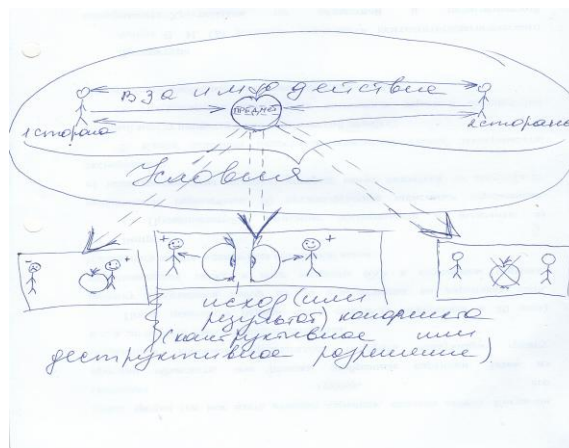 взаимодействие
предмет
1 сторона
2 сторона
Условия
- + + + 
исход (или
результат) конфликта
(конструктивное или
деструктивное разрешение)